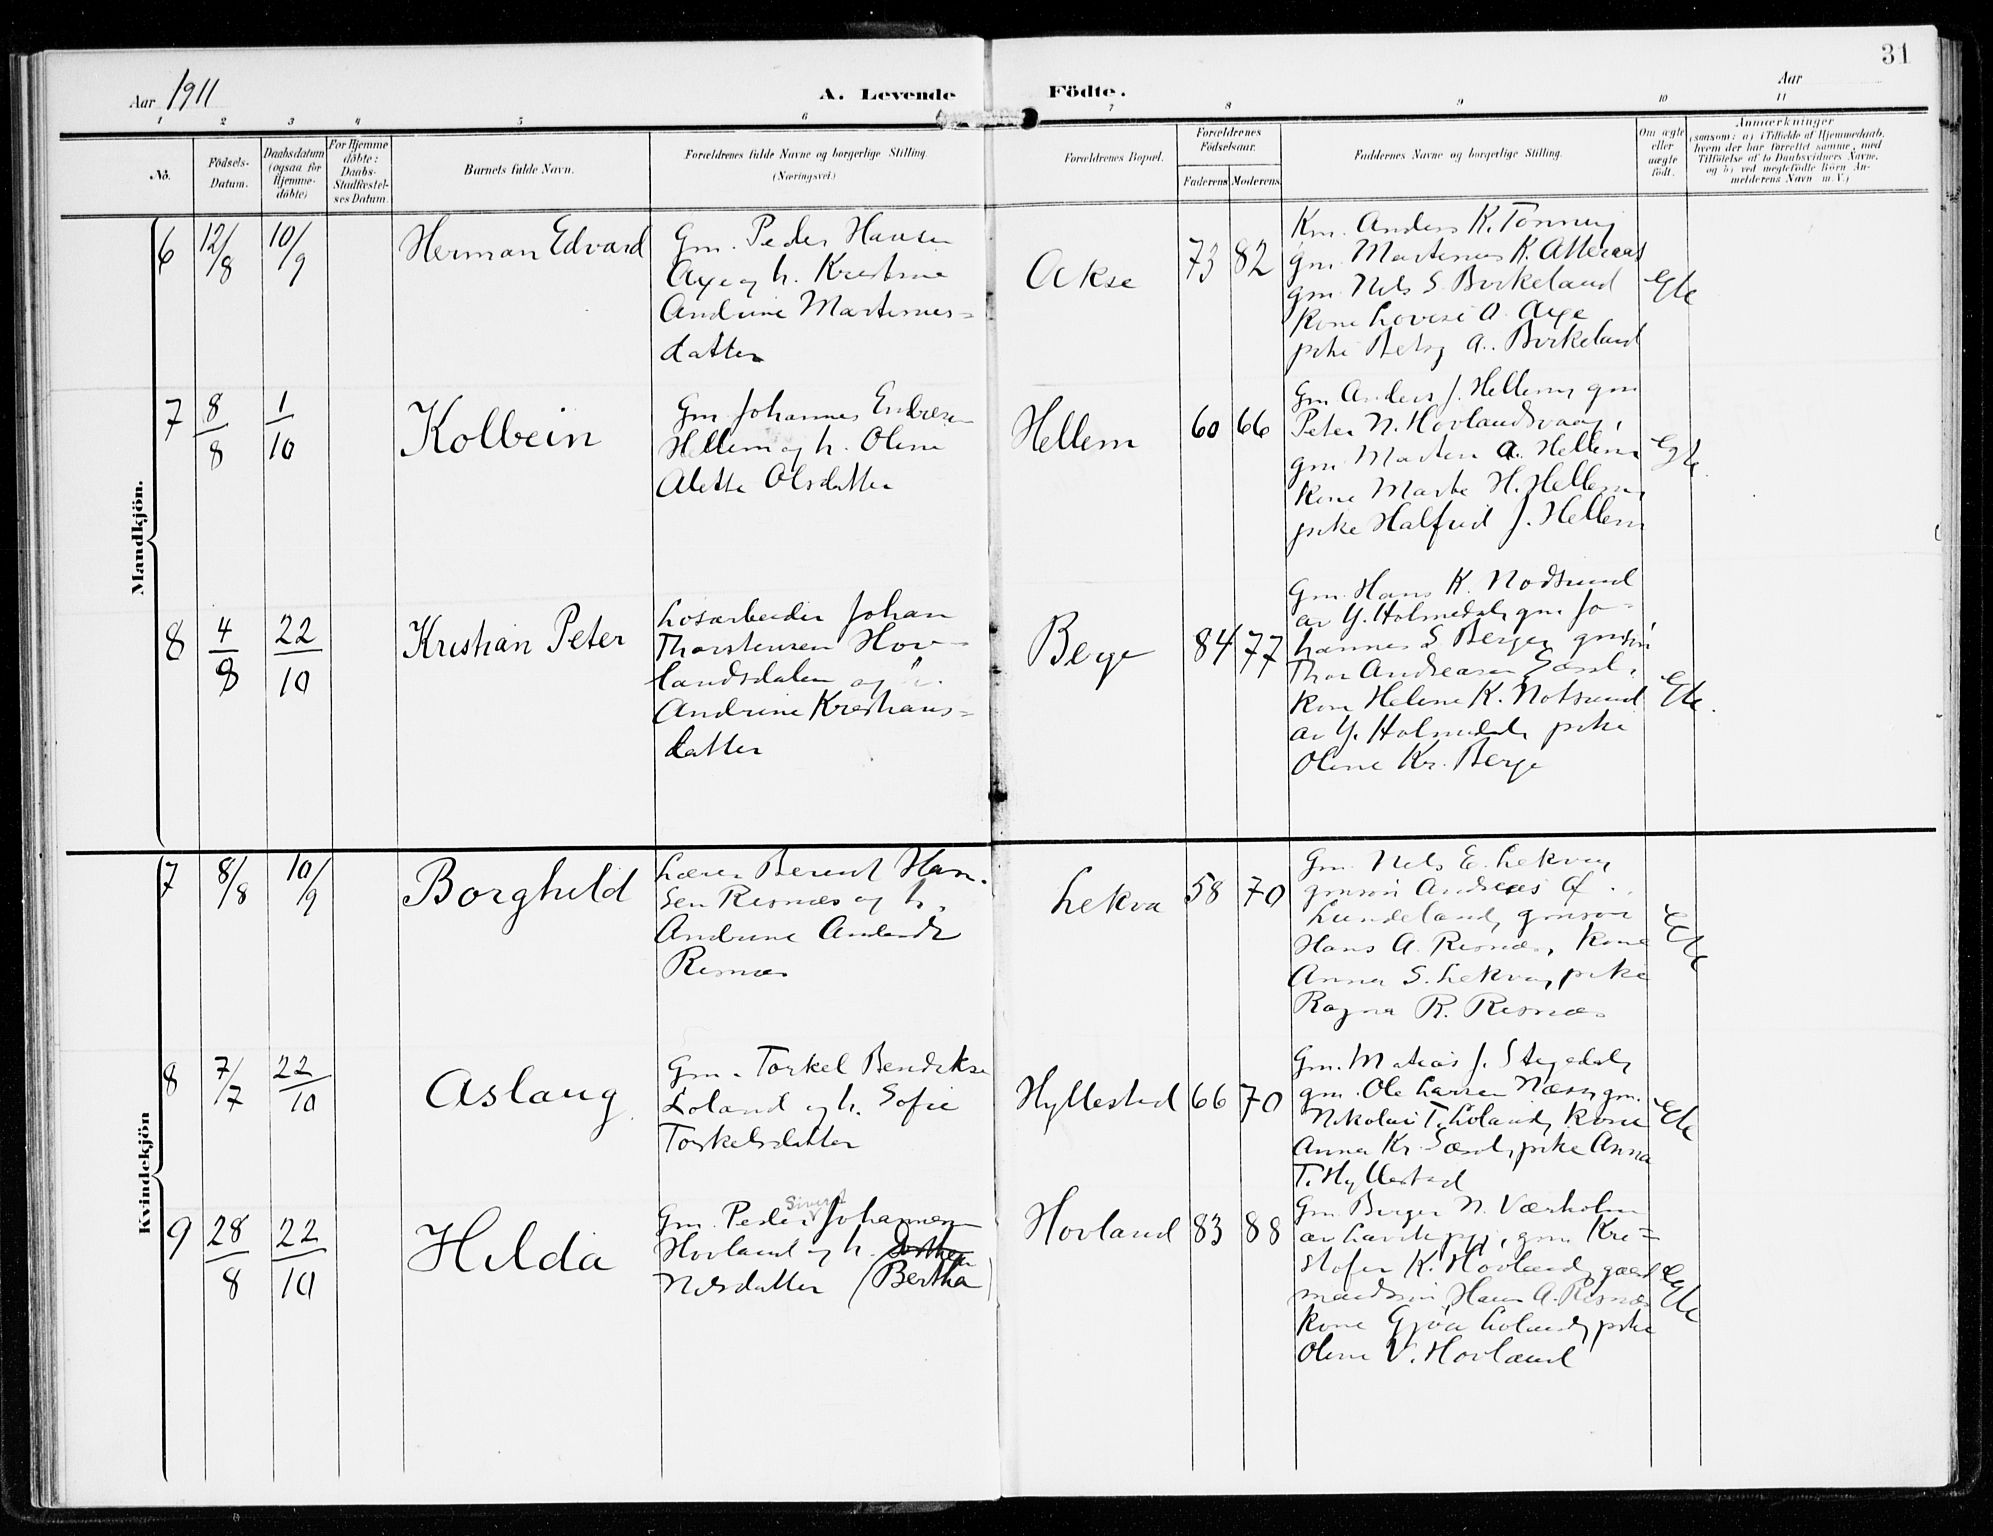 31
Aar 1911
A. Levende Födte.
Aar
1 2 3 4 5 6 7 8 9 10 11
No.
Födsels-Datum.
Daabsdatum (ogsaa för Hjemme-döbte)
For Hjemme döbte: Daabs-Stadfæstel-ses Datum.
Barnets fulde Navn.
Forældrenes fulde Navne og borgerlige Stilling (Næringsvei.)
Forældrenes Bopæl.
Forældrenes Födselsaar.
Faderens Moderens
Faddernes Navne og borgerlige Stilling.
Om ægte eller uægte födt.
Anmærkninger
(saasom: a) i Tilfælde af Hjemmedaab, hvem der har forrettet samme, med Tilföielse af to Daabsvidners Navne, og b) ved uegtefödte Börn An-melderens Navn m. V.)
Mandkjön.
6
12/8
10/9
Herman Edvard
Gm. Peder Hansen
Axe og h. Kristine
Andrine Martinus=
datter
Akse
73 82
Km. Anders K. Tönning
gm. Martinus K. Atteraas
gm. Nils S. Birkeland
kone Lovise O. Axe
pike Betsy A. Birkeland
Egte
7
8/8
1/10
Kolbein
Gm. Johannes Endresen
Hellem og h. Oline
Alette Olsdatter
Hellem
60 66
Gm. Anders J. Hellem, gm
Peter N. Hovlandsvaag,
gm. Martin A. Hellem
kone Marte H. Hellem,
pike Halfrid J. Hellem
Egte
8
4/8
22/10
Kristian Peter
Losarbeider Johan
Thorstensen Hov=
landsdalen og h.
Andrine Kristians=
datter
Berge
84 77
Gm. Hans K. Nodsund
av Y. Holmedal, gm. Jo=
hannes S. Berge, gmsön
Thor Andreasen
kone Helene K. Notsund
av Y. Holmedal, pike
Oline Kr. Berge
Egte.
Kvindekjön
7
8/8
10/9
Borghild
Lærer Berent Han=
sen Risnæs og h.
Andrine Andersdtr
Risnæs
Lekva
58 70
Gm. Nils E. Lekva,
gmsön Andreas
Lundeland, gmsön
Hans A. Risnæs, kone
Anna S. Lekva, pike
Ragna R. Risnæs
Egte
8
7/7
22/10
Aslaug
Gm. Torkel Bendiks.
Loland og h. Sofie
Torkelsdatter
Hyllestad
66 70
Gm. Matias J. Stigedal,
gm. Ole Larsen Næss, gm.
Nikolai T. Loland, kone
Anna Kr. , pike Anna
T. Hyllestad
Egte
9
28/8
22/10
Hilda
Sivert
Gm. Peder Johannessen
Hovland og h.
Nilsdatter (Bertha)
Hovland
83 88
Gm. Birger N. Værholm
av Lavik pgj., gm. Kri=
stofer K. Hovland, gaard
mandssön Hans A. Risnæs
kone Gjöa Loland, pike
Oline V. Hovland
Egte